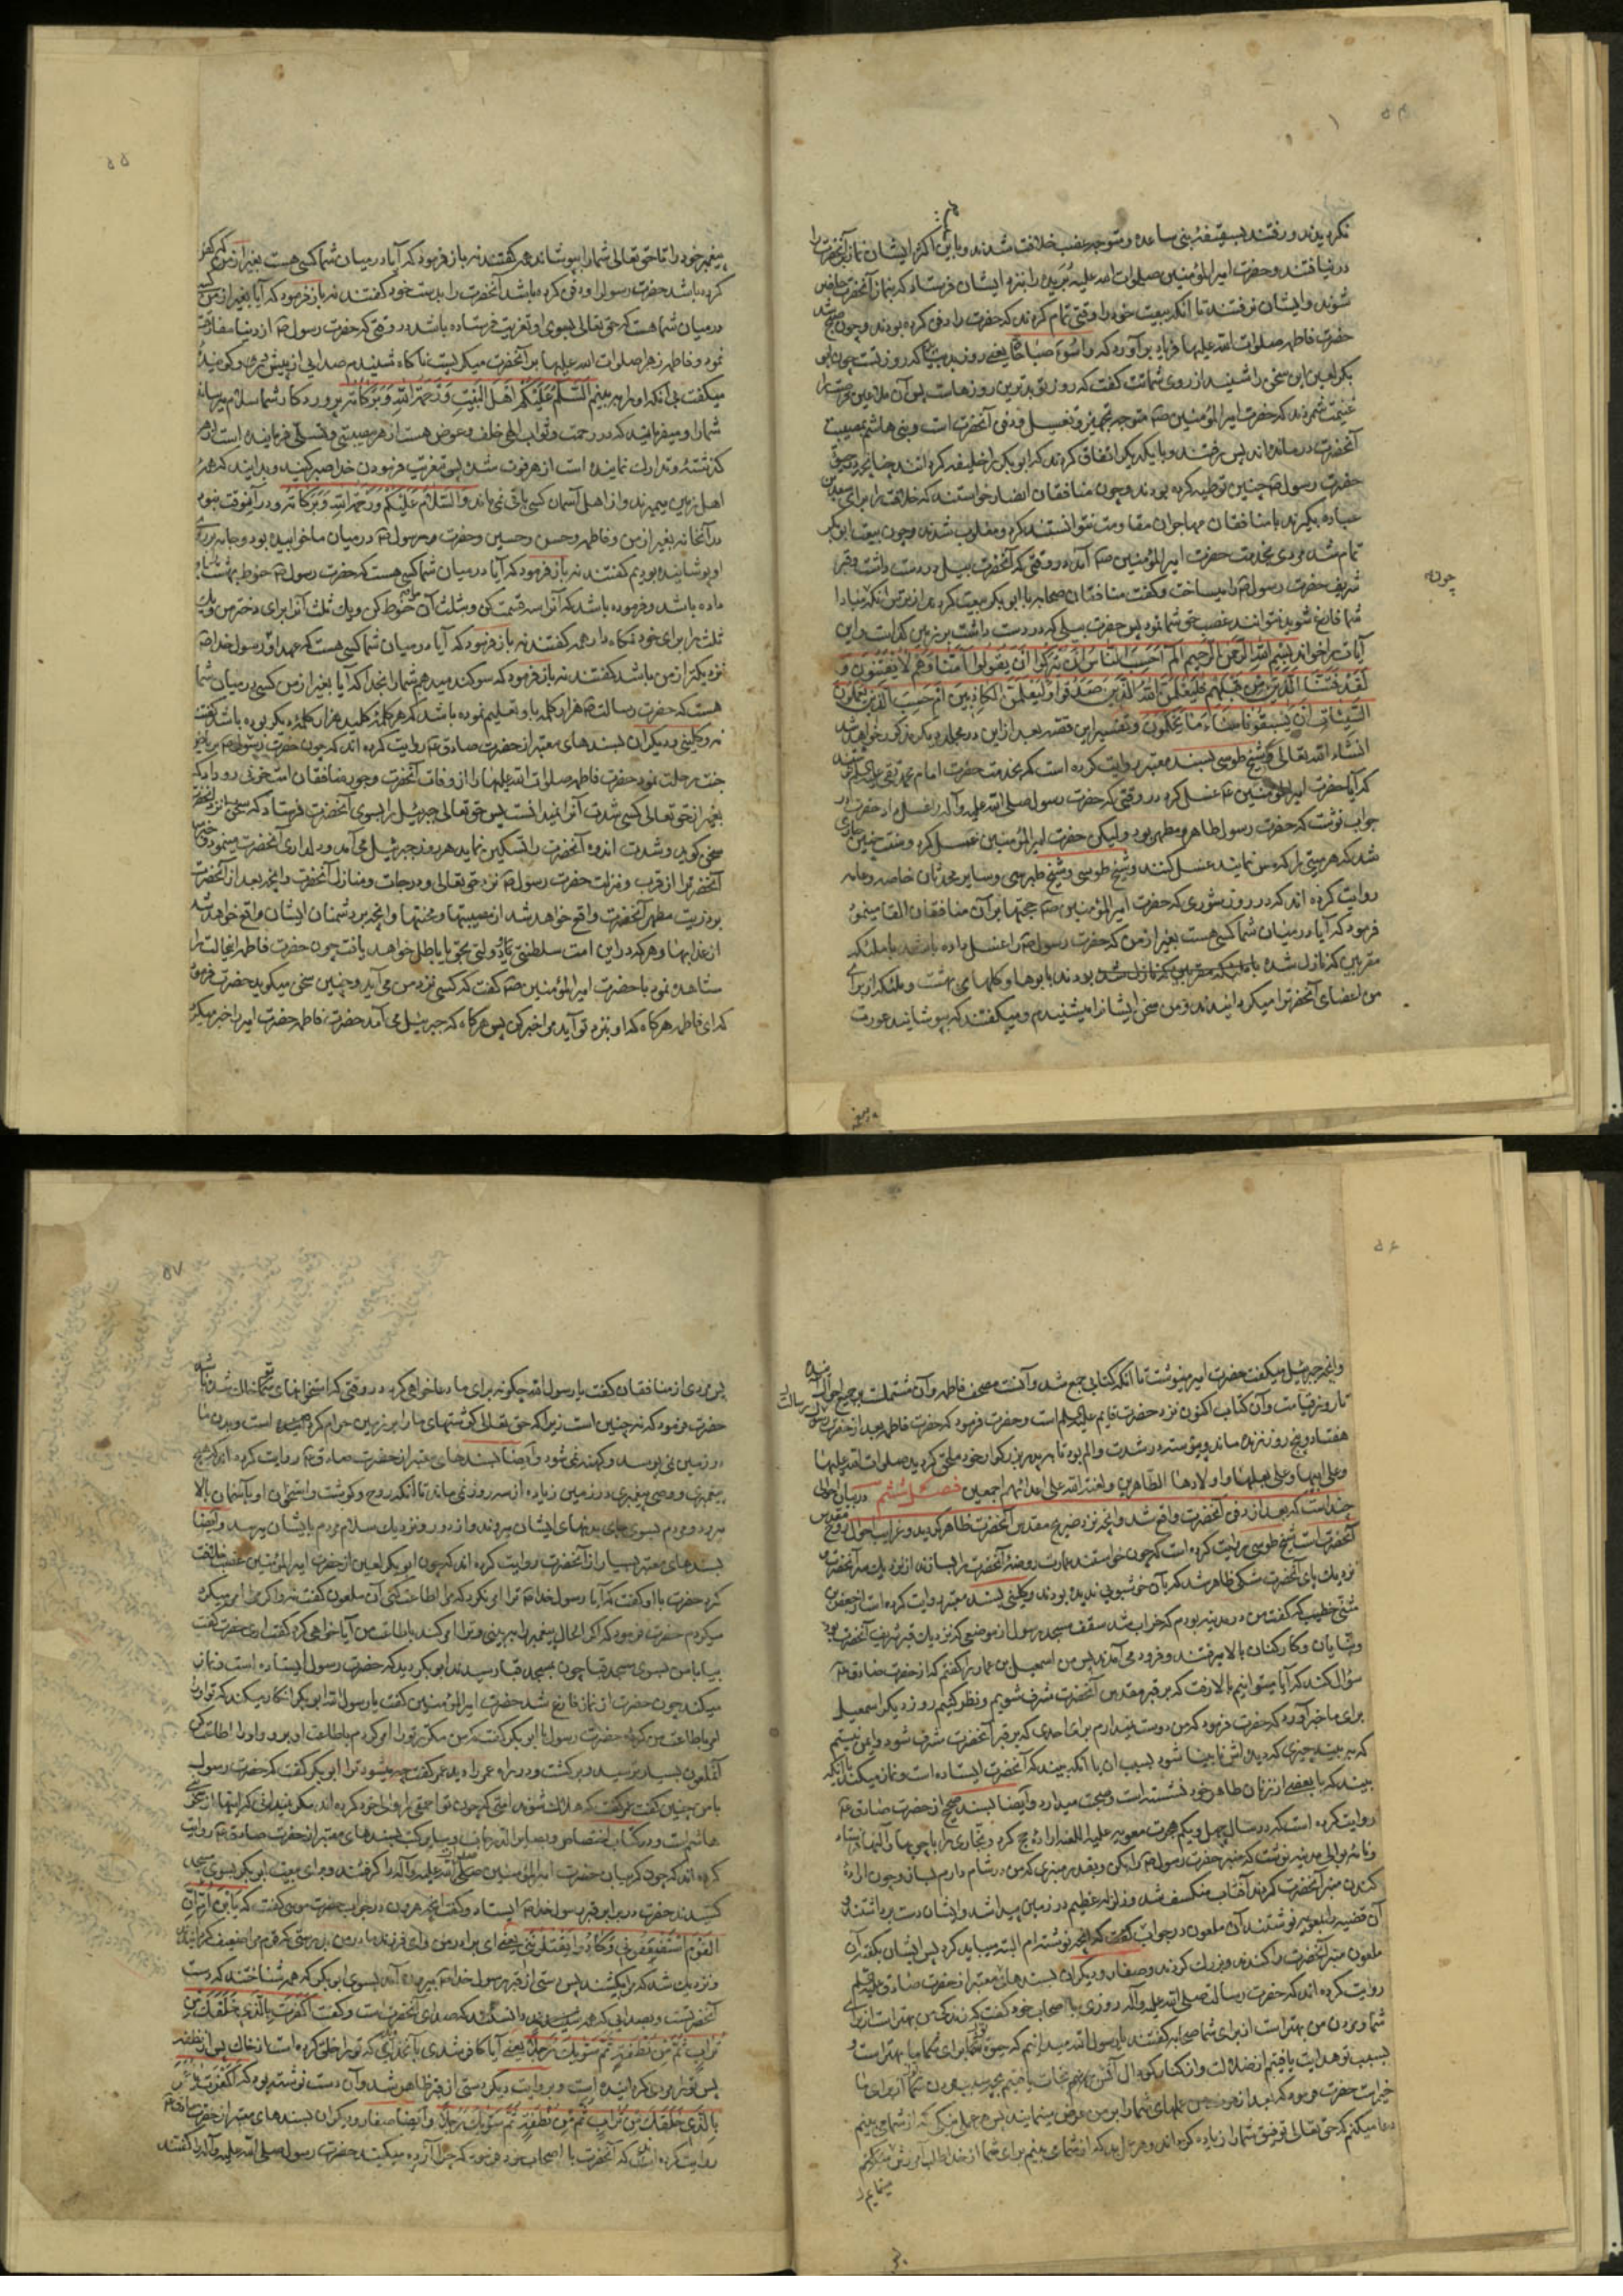 نکردیدند و رفتند بسقیفهٔ بنی ساعده و متوجه غصب خلافت شدند و باین اکثر ایشان نماز آنحضرت را
درنیافتند و حضرت امیرالمؤمنین صلوات الله علیه بریده را بنزد ایشان فرستاد که بنماز آنحضرت حاضر
شوند و ایشان نرفتند تا آنکه بیعت خود را وقتی تمام کردند که حضرت را دفن کرده بودند و چون صبح شد
حضرت فاطمه صلوات الله علیها فریاد برآورد که واسوء صباحاه یعنی روز بدیست که روز تست چون ابو
بکر لعین این سخن را شنید از روی شماتت گفت که روز تو بدترین روزهاست پس آن ملاعین فرصت را
غنیمت شمردند که حضرت امیرالمؤمنین متوجه تجهیز و تغسیل و دفن آنحضرت است و بنی هاشم بمصیبت
آنحضرت درمانده‌اند پس رفتند و با یکدیگر اتفاق کردند که ابوبکر را خلیفه کردانند چنانچه در حیوة
حضرت رسول چنین توطیه کرده بودند و چون منافقان انصار خواستند که خلافت را برای سعد بن
عباده بگیرند با منافقان مهاجران مقاومت نتوانستند کرد و مغلوب شدند و چون بیعت ابوبکر
تمام شد مردی بخدمت حضرت امیرالمؤمنین آمد در وقتی که آنحضرت بیل در دست داشت و قبر
شریف حضرت رسول را میساخت و گفت منافقان صحابه با ابوبکر بیعت کردند از ترس آنکه مبادا
شما فارغ شوید نتوانند غصب حق شما نمود پس حضرت بیلی که در دست داشت بر زمین گذاشت و این
آیات را خواند بسم الله الرحمن الرحیم الم احسب الناس ان یترکوا ان یقولوا آمنا وهم لا یفتنون و
لقد فتنا الذین من قبلهم فلیعلمن الله الذین صدقوا ولیعلمن الکاذبین ام حسب الذین یعملون
السیئات ان یسبقونا ساء ما یحکمون و تفسیر این قصه بعد از این در مجلد دیگر مذکور خواهد شد
انشاء الله تعالی و شیخ طوسی بسند معتبر روایت کرده است که بخدمت حضرت امام محمد تقی علیه السلم نوشتند
که آیا حضرت امیرالمؤمنین غسل کرد در وقتی که حضرت رسول صلی الله علیه وآله را غسل داد حضرت در
جواب نوشت که حضرت رسول طاهر و مطهر بود ولیکن حضرت امیرالمؤمنین غسل کرد و سنت چنین جاری
شد که هر میتی را که مس نمایند غسل کنند و شیخ طوسی و شیخ طبرسی و سایر محدثان خاصه و عامه
روایت کرده اند که در روز شوری که حضرت امیرالمؤمنین حجتها بر آن منافقان القا مینمود
فرمود که آیا در میان شما کسی هست بغیر از من که حضرت رسول را غسل داده باشد با ملئکه
مقربین که نازل شده بودند با بوها و گلهای بهشت و ملئکه از برای
من اعضای آنحضرترا میکردانیدند و من سخن ایشانرا میشنیدم و میگفتند که بپوشانید عورت
چون
پیغمبر خود را تا حق تعالی شما را بپوشاند همه گفتند نه باز فرمود که آیا در میان شما کسی هست بغیر از من که کفن
کرده باشد حضرت رسول را و دفن کرده باشد آنحضرت را بدست خود گفتند نه باز فرمود که آیا بغیر از من کسی
در میان شما هست که حق تعالی بسوی او تعزیت فرستاده باشد در وقتی که حضرت رسول از دنیا مفارقت
نمود و فاطمه زهرا صلوات الله علیها بر آنحضرت میگریست ناگاه شنیدم صدایی از پیش در و گوینده
میگفت بی آنکه او را ببینم السلم علیکم اهل البیت ورحمة الله وبرکاته پروردگار شما سلام میرساند
شما را و میفرماید که در رحمت و ثواب الهی خلف و عوض هست از هر مصیبتی و تسلی فرماینده است از هر
گذشته و تدارک نماینده است از هر فوت شده پس بتعزیت فرمودن خدا صبر کنید و بدانید که همه
اهل زمین میمیرند و از اهل آسمان کسی باقی نمی ماند والسلام علیکم ورحمة الله وبرکاته و در آنوقت نبود
در آنخانه بغیر از من و فاطمه و حسن و حسین و حضرت رسول در میان ما خوابیده بود و جامه بر روی
او پوشانیده بودیم گفتند نه باز فرمود که آیا در میان شما کسی هست که حضرت رسول حنوط بهشت باو
داده باشد و فرموده باشد که آنرا سه قسمت کن و ثلث آن مرا حنوط کن و یک ثلث آنرا برای دختر من و یک
ثلث را برای خود نگاه دار همه گفتند نه باز فرمود که آیا در میان شما کسی هست که عهد او برسول خدا
نزدیکتر از من باشد گفتند نه باز فرمود که سوگند میدهم شما را بخدا که آیا بغیر از من کسی در میان شما
هست که حضرت رسالت هزار کلمه باو تعلیم نموده باشد که هر کلمه کلید هزار کلمهٔ دیگر بوده باشد گفتند
نه و کلینی و دیگران بسندهای معتبر از حضرت صادق روایت کرده اند که چون حضرت رسول بریاض
جنت رحلت نمود حضرت فاطمه صلوات الله علیها را از وفات آنحضرت و جور منافقان امت حزنی رو داد که
بغیر از حق تعالی کسی شدت آنرا نمیدانست پس حق تعالی جبرئیل را بسوی آنحضرت فرستاد که
سخن گوید و شدت اندوه آنحضرت را تسکین نماید هر روز جبرئیل می آمد و دلداری آنحضرت مینمود و خبر میداد
آنحضرترا از قرب و منزلت حضرت رسول نزد حق تعالی و درجات و منازل آنحضرت و آنچه بعد از آنحضرت
بر ذریت مطهر آنحضرت واقع خواهد شد از مصیبتها و محنتها و آنچه بر دشمنان ایشان واقع خواهد شد
از عذابها و هر که در این امت سلطنتی یا دولتی بحق یا باطل خواهد یافت چون حضرت فاطمه اینحالت را
مشاهده نمود با حضرت امیرالمؤمنین گفت که کسی نزد من می آید و چنین سخن میگوید حضرت فرمود
که ای فاطمه هرگاه که او بنزد تو آید مرا خبر کن پس هرگاه که جبرئیل می آمد حضرت فاطمه حضرت امیر را خبر میکرد
۵۵
و آنچه جبرئیل میگفت حضرت امیر مینوشت تا آنکه کتابی جمع شد و آنست مصحف فاطمه و آن مشتملست بر جمیع احوال آینده
تا روز قیامت و آن کتاب اکنون نزد حضرت قایم علیه السلم است و حضرت فرمود که حضرت فاطمه بعد از حضرت رسالت
هفتاد و پنج روز زنده ماند و پیوسته در شدت و الم بود تا به پدر بزرگوار خود ملحق گردید صلوات الله علیها
وعلی ابیها وعلی بعلها واولادها الطاهرین ولعنة الله علی اعدائهم اجمعین فصل ششم در بیان احوالی
چند است که بعد از دفن آنحضرت واقع شد و آنچه نزد ضریح مقدس آنحضرت ظاهر گردید و غرایب احوال روح مقدس
آنحضرت است شیخ طوسی روایت کرده است که چون خواستند عمارت روضهٔ آنحضرت را بسازند از نزدیک سر آنحضرت و
نزدیک پای آنحضرت مشکی ظاهر شد که بآن خوشبویی ندیده بودند و کلینی بسند معتبر روایت کرده است از جعفر بن
مثنی خطیب که گفت من در مدینه بودم که خراب شد سقف مسجد رسول از موضعی که نزدیک قبر شریف آنحضرت بود
و بنایان و کارکنان بالا میرفتند و فرود می آمدند پس من اسمعیل بن عمار را گفتم که از حضرت صادق
سؤال کند که آیا میتوانیم بالا رفت که بر قبر مقدس آنحضرت مشرف شویم و نظر کنیم روز دیگر اسمعیل
برای ما خبر آورد که حضرت فرمود که من دوست نمیدارم برای احدی که بر قبر آنحضرت مشرف شود و ایمن نیستم
که ببیند چیزی که دیده اش نابینا شود بسبب آن یا آنکه ببیند که آنحضرت ایستاده است و نماز میکند یا آنکه
ببیند که با بعضی از زنان طاهر خود نشسته است و صحبت میدارد و ایضا بسند صحیح از حضرت صادق
روایت کرده است که در سال چهل و یکم هجرت معویه علیه اللعنه ارادهٔ حج کرد و نجاری را با چوبها و آلتها فرستاد
و نامه بوالی مدینه نوشت که منبر حضرت رسول را بکن و بقدر منبری که من در شام دارم بساز و چون ارادهٔ
کندن منبر آنحضرت کردند آفتاب منکسف شد و زلزلهٔ عظیم در زمین پیدا شد و ایشان دست برداشتند و
آن قضیه را بمعویه نوشتند آن ملعون در جواب گفت که آنچه نوشته ام البته میباید کرد پس ایشان بگفتهٔ آن
ملعون منبر آنحضرت را کندند و بزرگ کردند و صفار و دیگران بسندهای معتبر از حضرت صادق علیه السلم
روایت کرده اند که حضرت رسالت صلی الله علیه وآله روزی با اصحاب خود گفت که زندگی من بهتر است از برای
شما و مردن من بهتر است از برای شما صحابه گفتند یا رسول الله میدانیم که حیوة شما برای ما بهتر است و
بسبب تو هدایت یافتیم از ضلالت و از کنار گودال آتش جهنم نجات یافتیم بچه سبب مردن شما از برای ما
خیر است حضرت فرمود که بعد از مردن من عملهای شما را بر من عرض مینمایند پس هر عمل نیکی که از شما می بینم
دعا میکنم که حق تعالی توفیق شما را زیاده گرداند و هر عمل بدی که از شما می بینم برای شما از خدا طلب آمرزش
مینمایم
پس مردی از منافقان گفت یا رسول الله چگونه برای ما دعا خواهی کرد در وقتی که استخوانهای تو خاک شده باشد
حضرت فرمود که نه چنین است زیرا که حق تعالی گوشتهای ما را بر زمین حرام کرده است و بدن ما
در زمین نمی پوسد و کهنه نمی شود و ایضا بسندهای معتبر از حضرت صادق روایت کرده اند که هیچ
پیغمبری و وصی پیغمبری در زمین زیاده از سه روز نمی ماند تا آنکه روح و گوشت و استخوان او باسمان بالا
میرود و مردم بسوی جای بدنهای ایشان میروند و از دور و نزدیک سلام مردم بایشان میرسد و ایضا
بسندهای معتبر بسیار از آنحضرت روایت کرده اند که چون ابوبکر لعین از حضرت امیرالمؤمنین غصب خلافت
کرد حضرت با او گفت که آیا رسول خدا ترا امر نکرد که مرا اطاعت کنی آن ملعون گفت نه و اگر مرا امر میکرد
میکردم حضرت فرمود که اگر الحال پیغمبر را ببینی و ترا امر کند باطاعت من آیا خواهی کرد گفت آری حضرت گفت
بیا با من بسوی مسجد قبا چون بمسجد قبا رسیدند ابوبکر دید که حضرت رسول ایستاده است و نماز
میکند چون حضرت از نماز فارغ شد حضرت امیرالمؤمنین گفت یا رسول الله ابوبکر انکار میکند که تو او را
امر باطاعت من کرده حضرت رسول با ابوبکر گفت که من مکرر تو را امر کردم باطاعت او برو و او را اطاعت کن
آنملعون بسیار ترسید و برگشت و در راه عمر را دید عمر گفت چه میشود ترا ابوبکر گفت که حضرت رسول
با من چنین گفت عمر گفت که هلاک شوند امتی که چون تو احمقی را والی خود کرده اند مگر نمیدانی که اینها از سحر
بنی هاشمست و در کتاب اختصاص و بصایر الدرجات و سایر کتب بسندهای معتبر از حضرت صادق روایت
کرده اند که چون گریبان حضرت امیرالمؤمنین صلی الله علیه وآله را گرفتند و برای بیعت ابوبکر بسوی مسجد
کشیدند حضرت در برابر قبر رسول خدا ایستاد و گفت آنچه هرون در جواب حضرت موسی گفت که یابن ام ان
القوم استضعفونی وکادوا یقتلوننی یعنی ای برادر من و ای فرزند مادر من بدرستی که قوم مرا ضعیف گردانیدند
و نزدیک شد که مرا بکشند پس دستی از قبر رسول خدا بیرون آمد بسوی ابوبکر که همه شناختند که دست
آنحضرتست و بصدایی که همه شنیدند و دانستند که صدای آنحضرتست و گفت اکفرت بالذی خلقک من
تراب ثم من نطفة ثم سویک رجلا یعنی آیا کافر شدی بآنخدای که ترا خلق کرده است از خاک پس از نطفه
پس ترا مردی گردانیده است و بروایت دیگر دستی از قبر ظاهر شد و آن دست نوشته بود که اکفرت یا عمر
بالذی خلقک من تراب ثم من نطفة ثم سویک رجلا و ایضا صفار و دیگران بسندهای معتبر از حضرت صادق
روایت کرده اند که آنحضرت با اصحاب خود فرمود که چرا آزرده میکنید حضرت رسول صلی الله علیه وآله را گفتند
۵۷